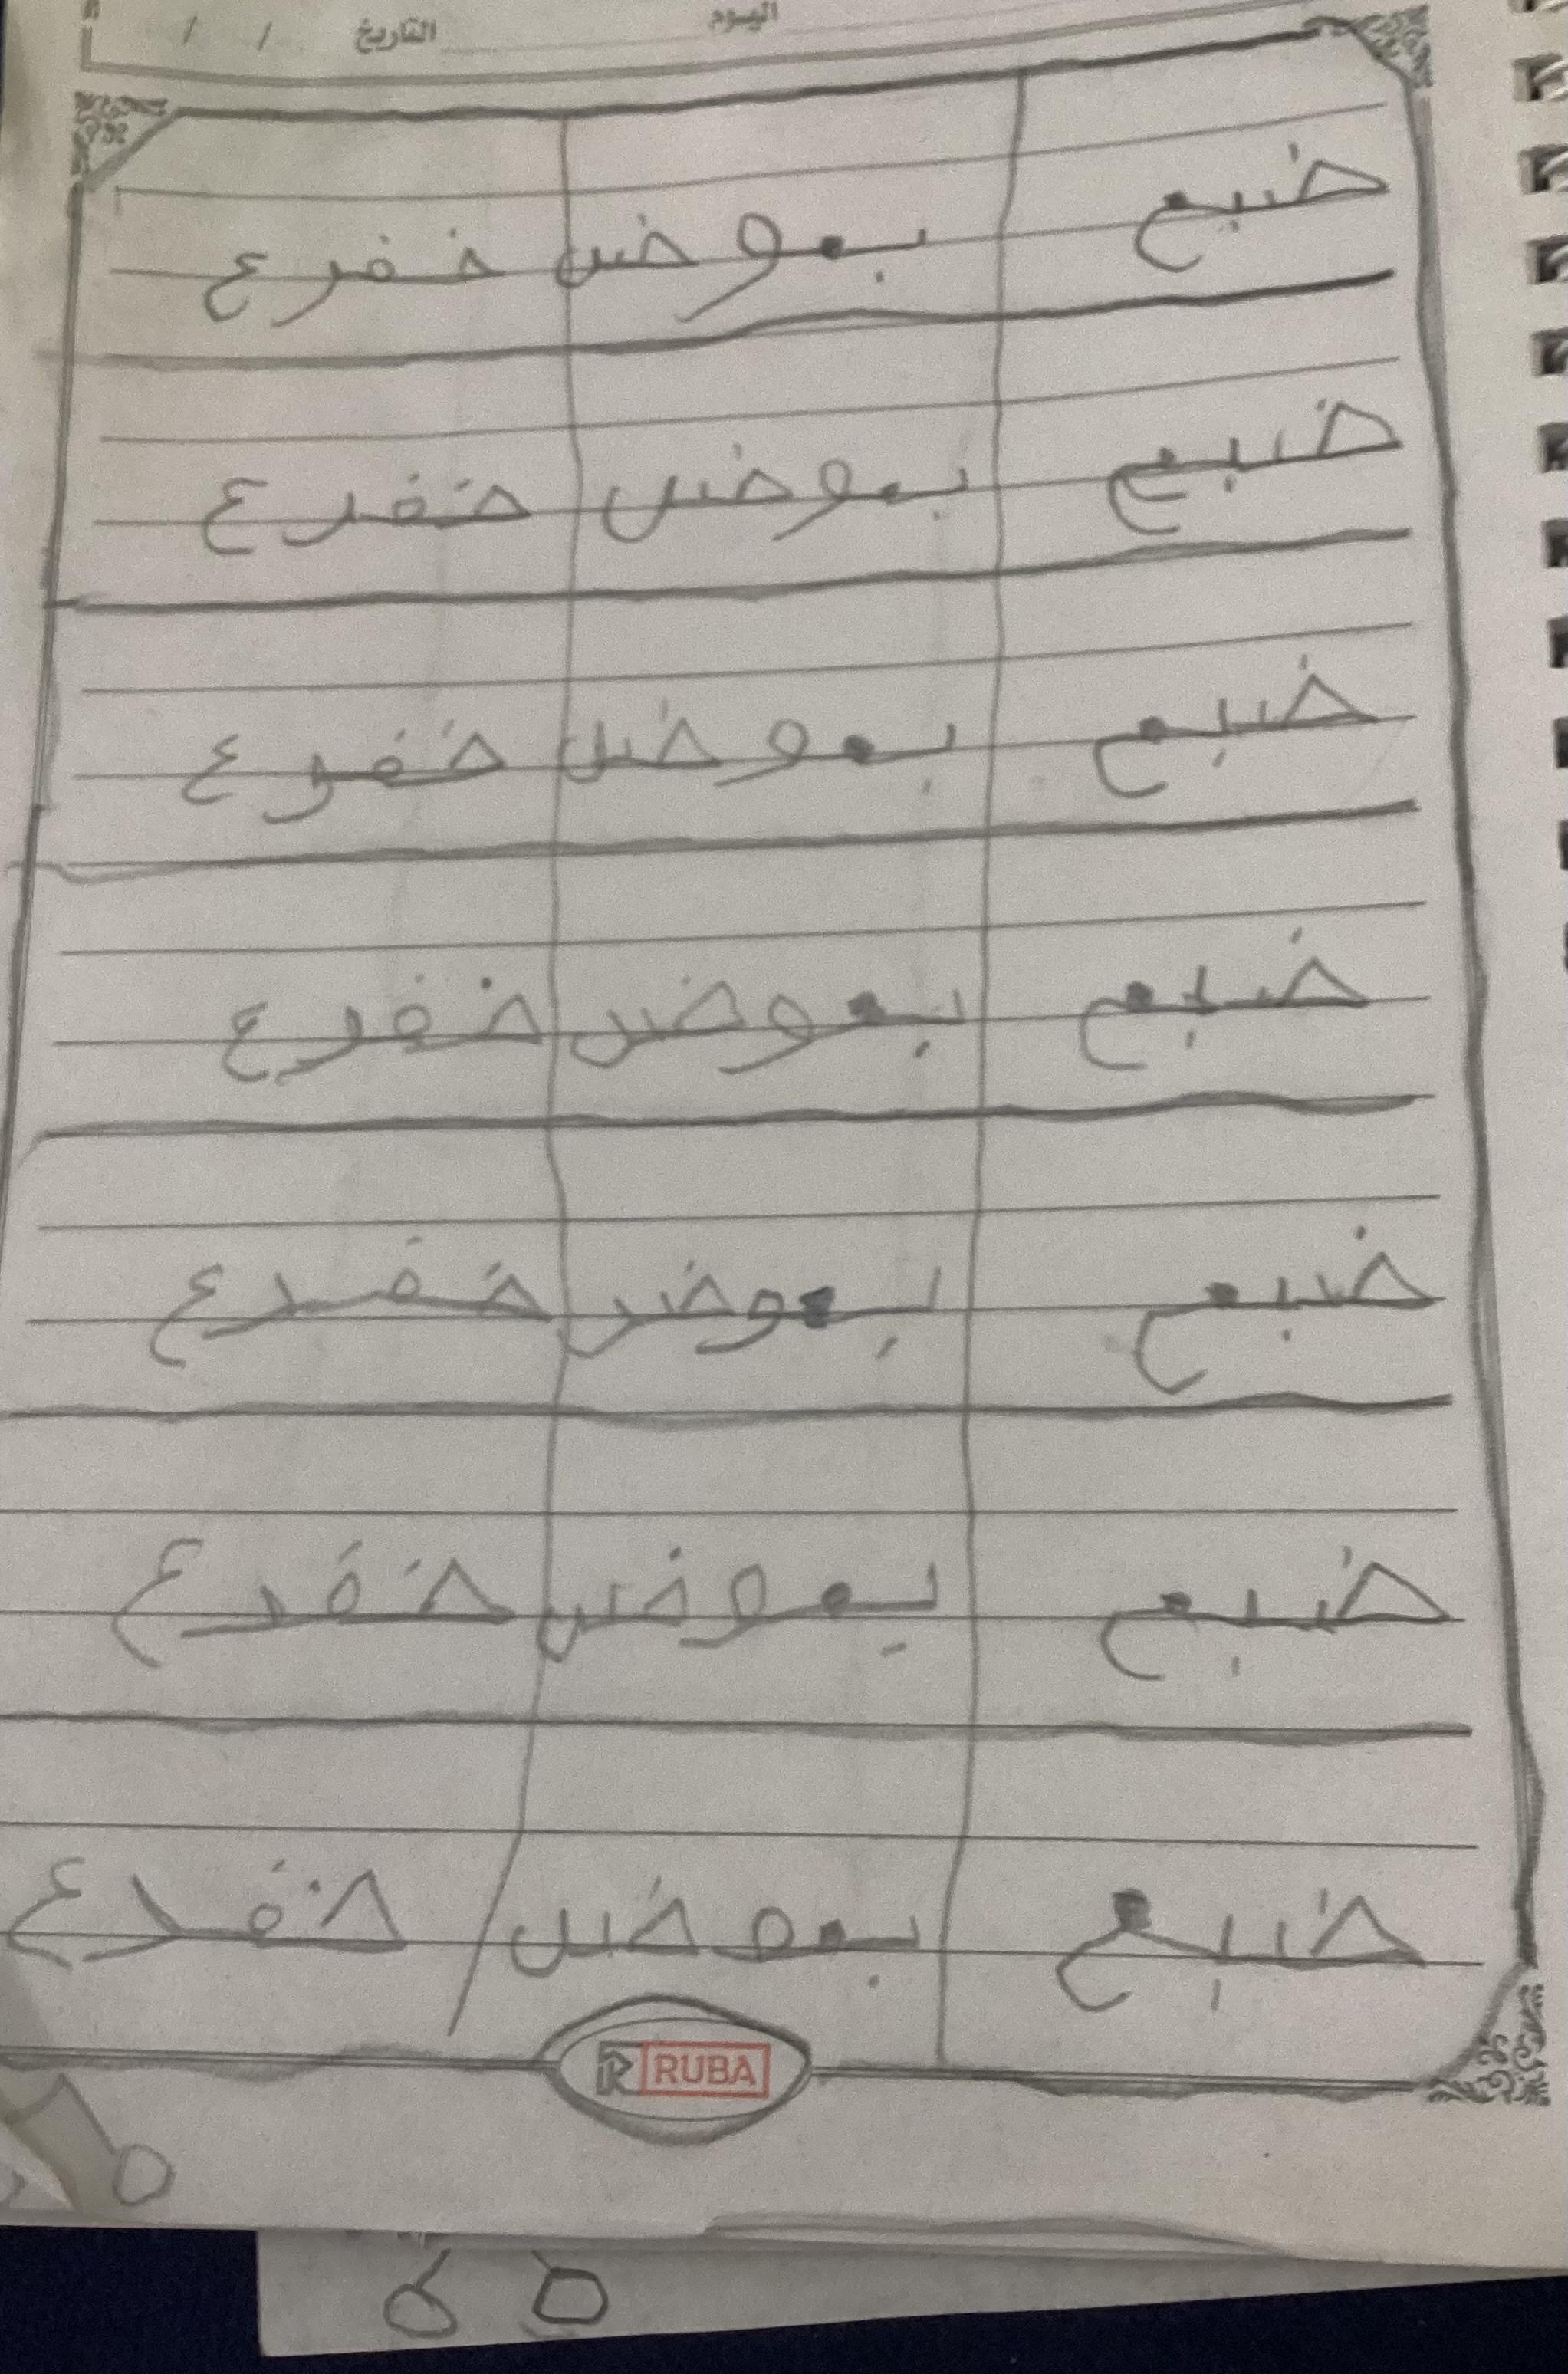 اليوم التاريخ / /
ضبع بعوض ضفدع
ضبع بعوض ضفدع
ضبع بعوض ضفدع
ضبع بعوض ضفدع
ضبع بعوض ضفدع
ضبع بعوض ضفدع
ضبع بعوض ضفدع
R RUBA